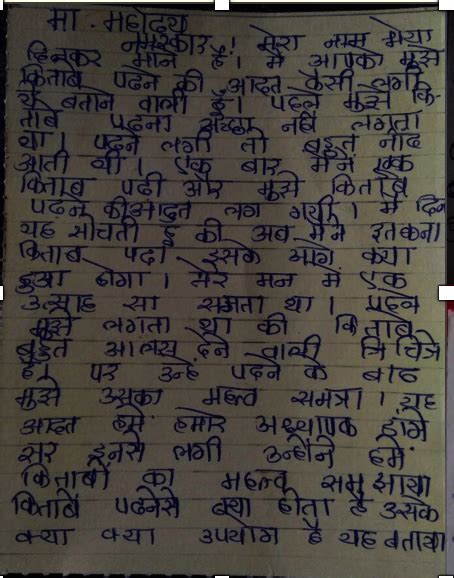 मा. महोदय
नमस्कार! मेरा नाम मेघा
दिनकर माने है। मै आपको मुझे
किताब पढने की आदत कैसी लगी
ये बताने वाली हूँ। पहले मुझे कि-
ताबे पढना अच्छा नही लगता
था। पढने लगी तो बहुत नींद
आती थी। एक बार मैंने एक
किताब पढी और मुझे किताबे
पढने की आदत लग गयी। मै दिन
यह सोचती हू की अब मैने इतकना
किताब पढा इसके आगे क्या
हुआ होगा। मेरे मन मे एक
उत्साह सा रामता था। पहले
मुझे लगता था की किताबे
बहुत आलस देने वाली चिचित्रे
है। पर उन्हे पढने के बाद
मुझे उसका महत्व समझा। यह
आदत हमे हमारे अध्यापक डांगे
सर इनसे लगी उन्होंने हमे
किताबों का महत्व समझाया
किताबे पढनेसे क्या होता है उसके
क्या क्या उपयोग है यह बताया